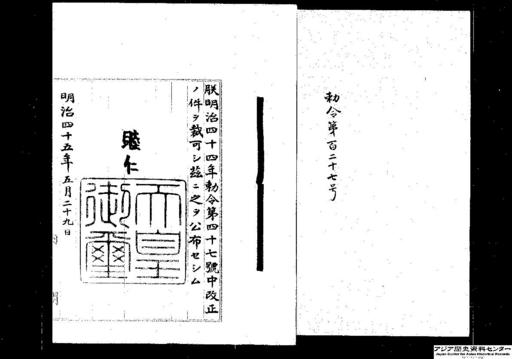 勅令第百二十七号
朕明治四十四年勅令第四十七號中改正
ノ件ヲ裁可シ玆ニ之ヲ公布セシム
睦仁
天皇御璽
明治四十五年五月二十九日
アジア歴史資料センター
Japan Center for Asian Historical Records